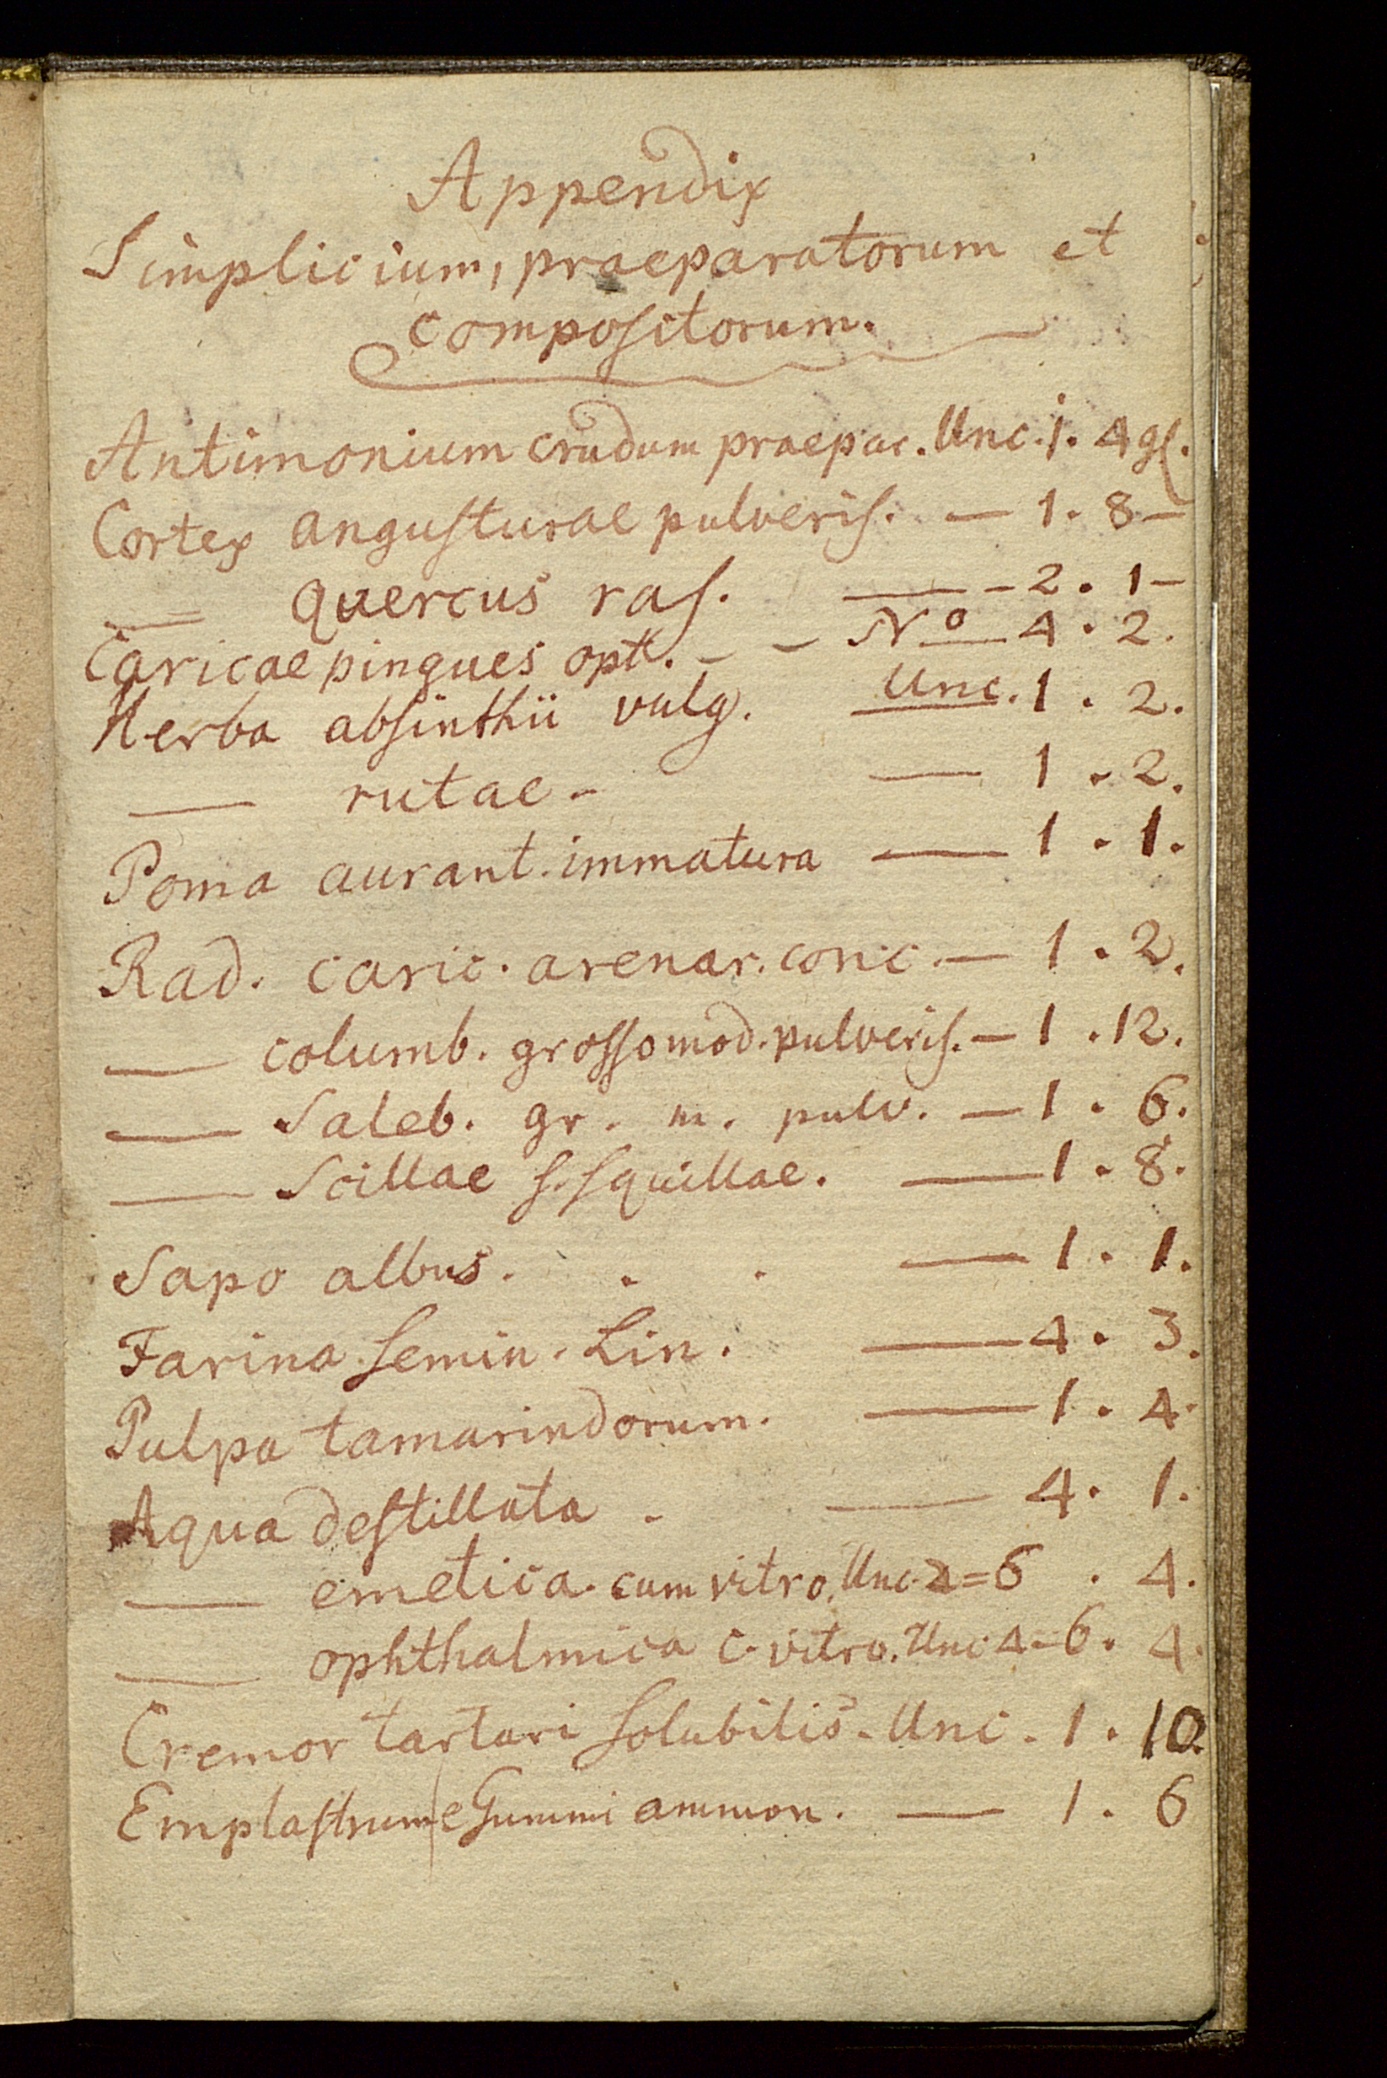 Appendix
Simplicium, praeparatorum et
compositorum.
Antimonium crudum praepar. Unc. 1. 4 gſ.
Cortex anguſturae pulveriſ. — 1. 8 —
— Quercus raſ. — 2. 1 —
Caricae pingues opt. – – No 4. 2.
Herba abſinthii vulg. Unc. 1. 2.
— rutae – — 1. 2.
Poma aurant. immatura — 1. 1.
Rad. caric. arenar. conc. — 1. 2.
— columb. groſſomod. pulveriſ. — 1. 12.
— Saleb. gr. m. pulv. — 1. 6.
— Scillae ſ. ſquillae. — 1. 8.
Sapo albus. . . — 1. 1.
Farina ſemin. Lin. — 4. 3.
Pulpa tamarindorum. — 1. 4.
Aqua deſtillata . — 4. 1.
— emetica. cum vitro. Unc. 2=6 . 4.
— ophthalmica c. vitro. Unc. 4=6. 4.
Cremor tartari ſolubilis. Unc. 1. 10.
Emplaſtrum e Gummi ammon. — 1. 6